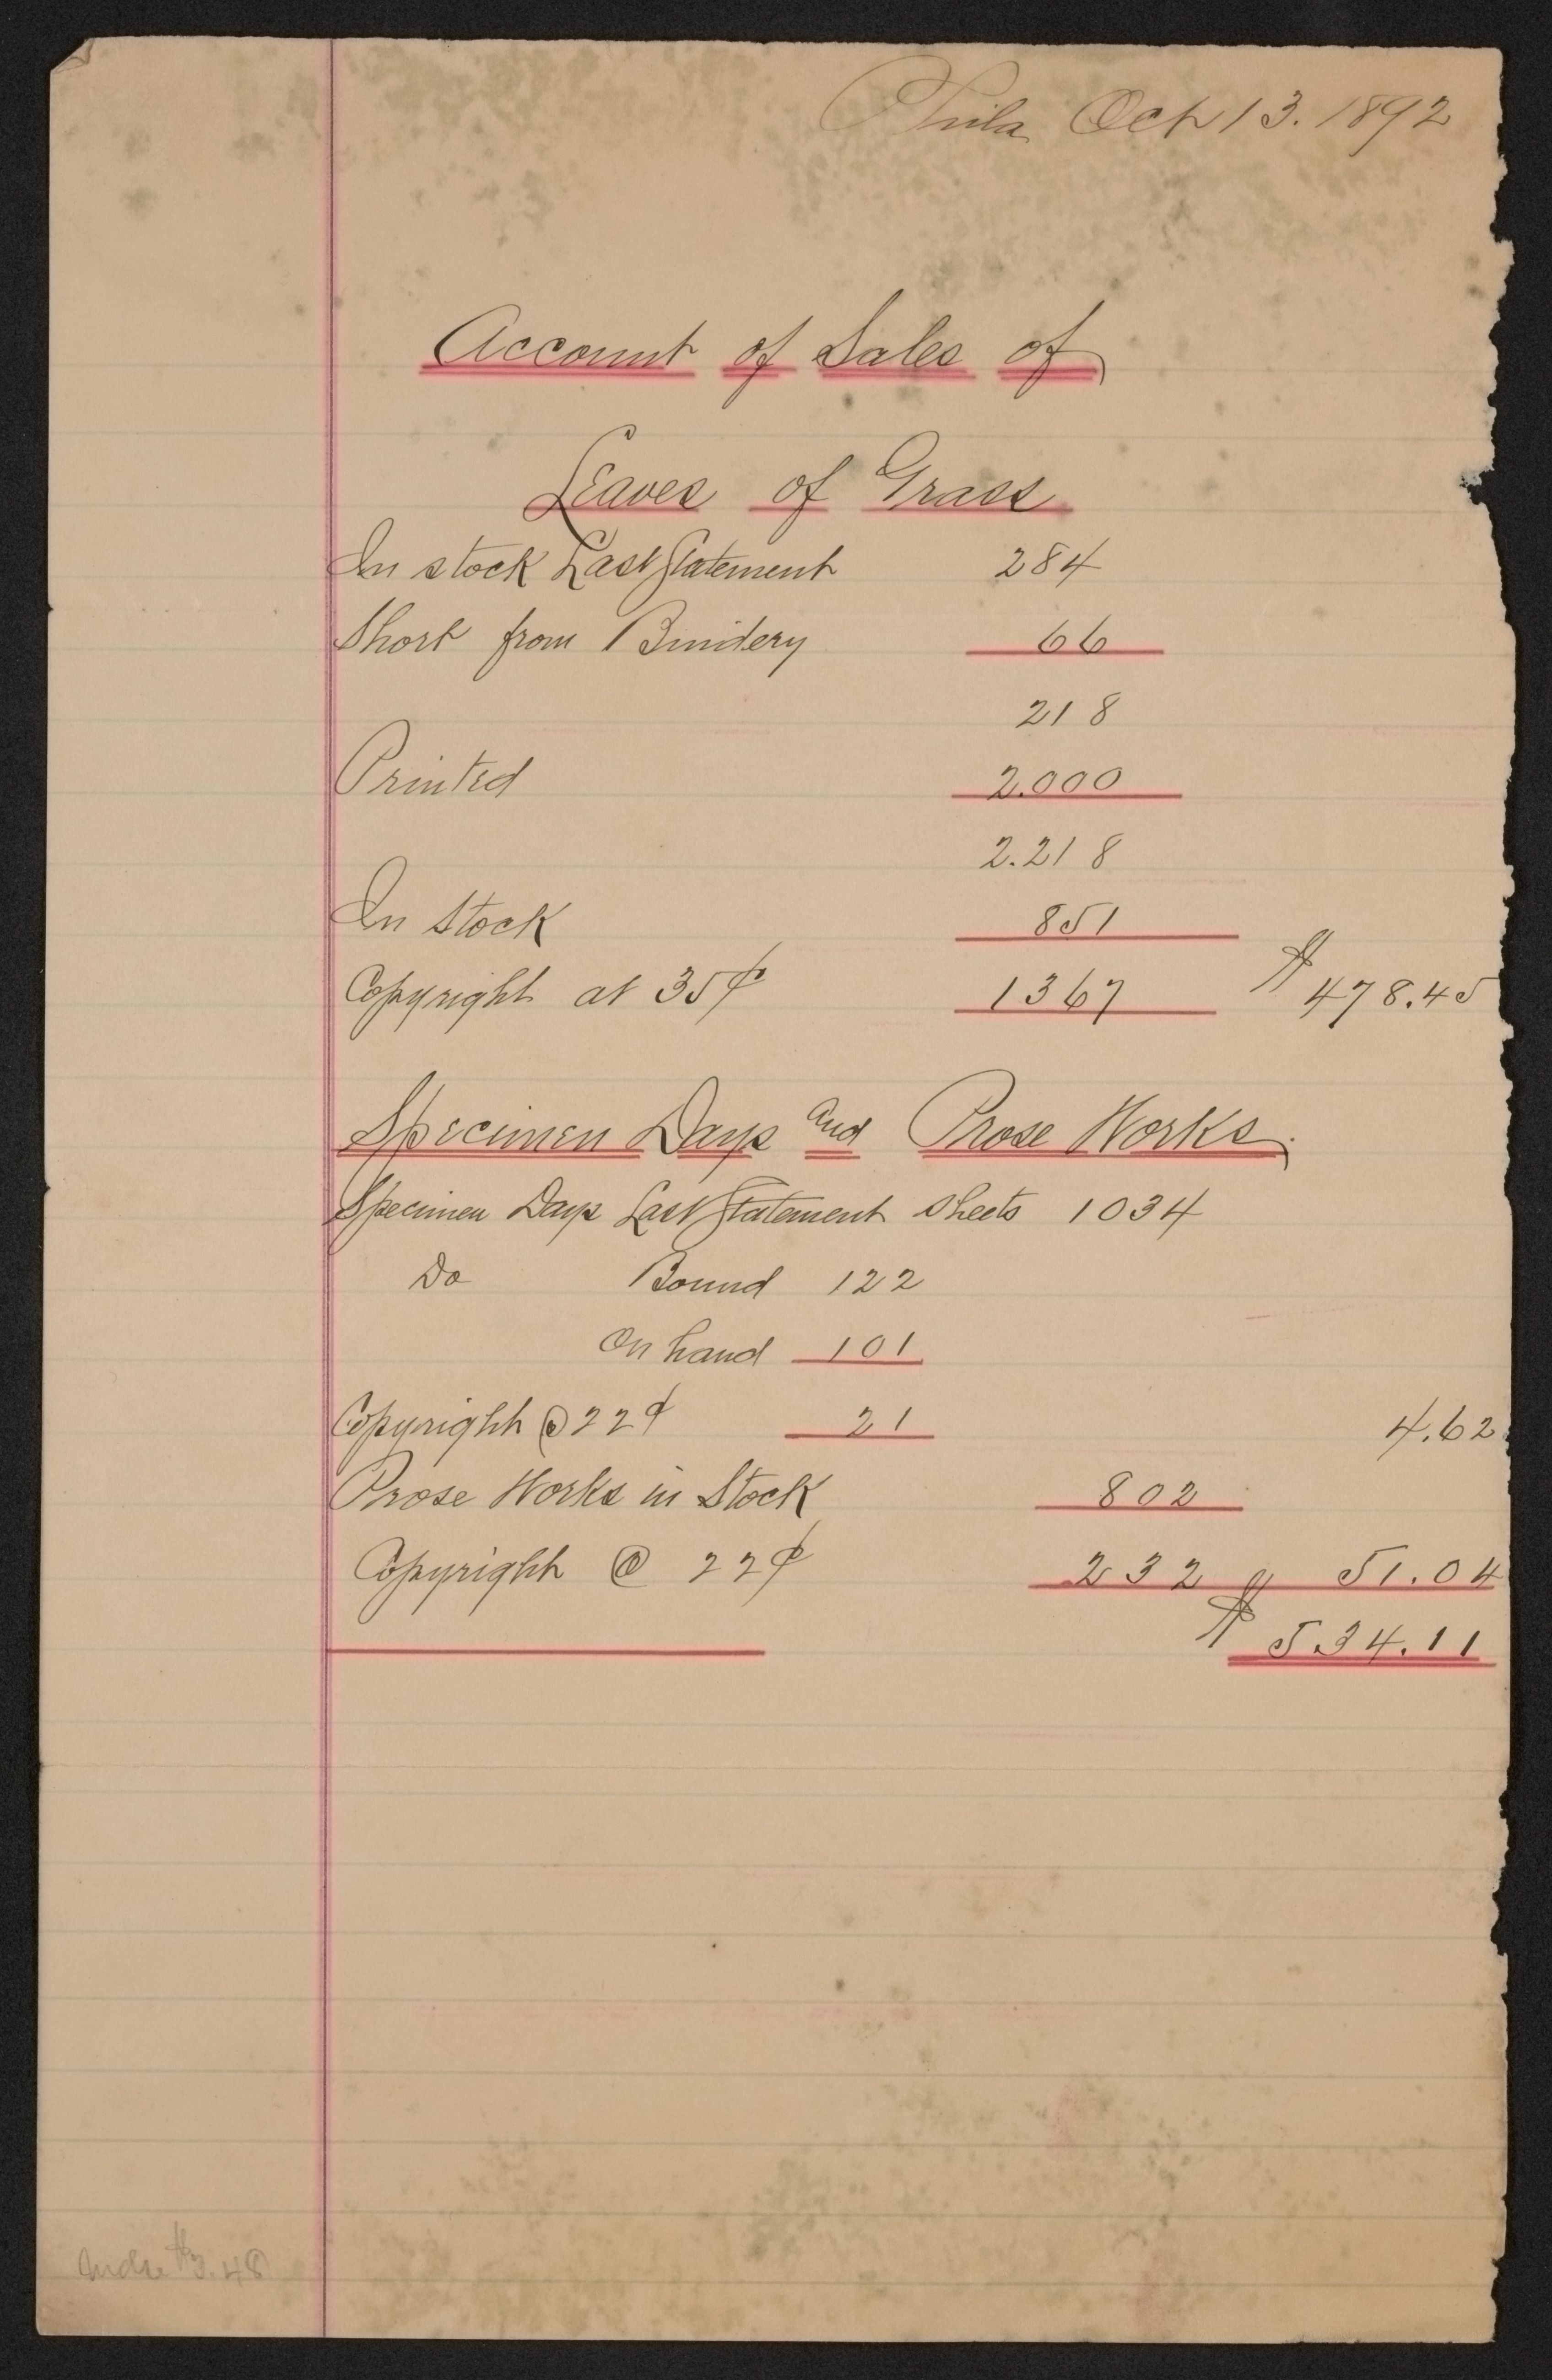 Phila Oct 13. 1892
Account of Sales of
Leaves of Grass
In stock Last Statement 284
Short from Bindery 66
218
Printed 2.000
2.218
In Stock 851
Copyright at 35¢ 1367 $478.45
Specimen Days and Prose Works.
Specimen Days Last Statement sheets 1034
Do Bound 122
On hand 101
Copyright @ 22¢ 21 4.62
Prose Works in Stock 802
Copyright @ 22¢ 232 51.04
$534.11
$3.48